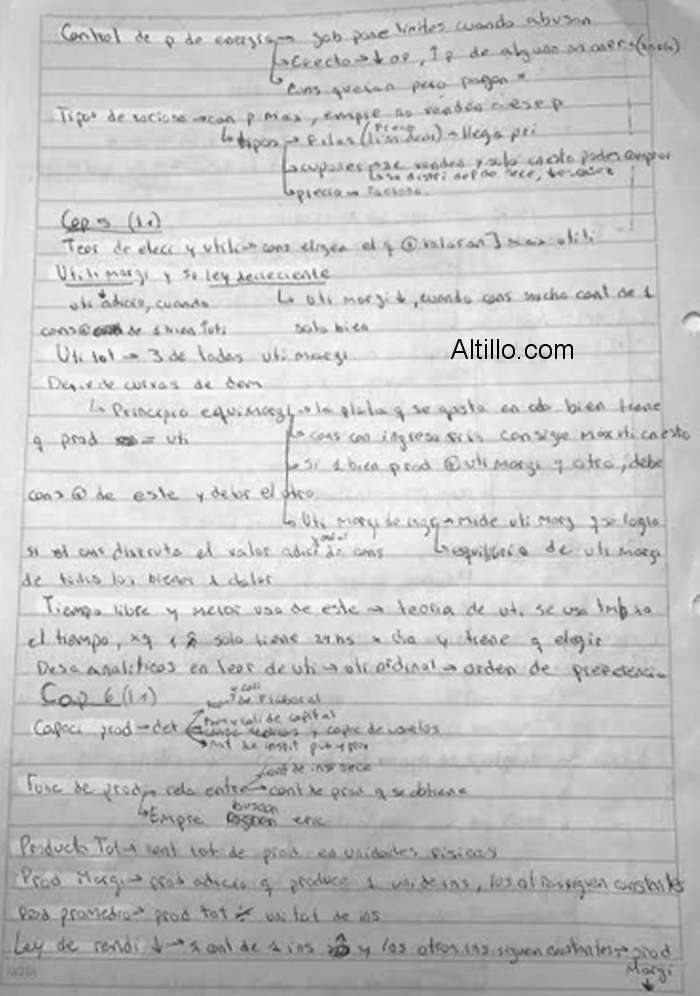 Control de p de energía → gob pone limites cuando abusan
↳ Efecto → ↓ of, ↑ p de alguna manera
↳ Cons quejan pero pagan
Tipos de racion → con p max, empre no venden a ese p
↳ tipos → Filas (lim dem) → llega pri
↳ cupones → se venden y solo c/ esto podes comprar
↳ precio →
Cap 5 (1.1)
Teor de elecc y utili → cons eligen el q + valoran ] max utili
Utili margi y su ley decreciente
uti adicio, cuando ↳ uti margi ↓, cuando cons mucha cant de 1
cons + de 1 bien ↑ uti solo bien
Uti tot → Σ de todas uti margi
Altillo.com
de curvas de dem
↳ Principio equimargi → la plata q se gasta en cada bien tiene
q prod = uti
↳ cons con ingreso fijo consigue max uti c/ esto
↳ Si 1 bien prod + uti margi q otro, debe
cons + de este y dejar el otro
↳ Uti margi de ingr → mide uti marg q se logra
si el cons disfruta el valor adici de cons
↳ equilibrio de uti margi
de todos los bienes 1 dolar
Tiempo libre y mejor uso de este → teoria de uti se usa tmb pa
el tiempo, xq 1 solo tiene 24 hs x dia y tiene q elegir
Desa analiticos en teor de uti → uti ordinal → orden de preferencia
Cap 6 (1.1)
y cali
de F laboral
Capaci prod → det
tam y cali de capital
y copia de
Nat de instit pub y priv
cant de ins nece
Func de prod → rela entre → cant de prod q se obtiene
↳ Empre buscan efic
Producto Tot → cant tot de prod en unidades fisicas
Prod Margi → prod adicio q produce 1 uni de ins, los otros siguen constantes
Prod promedio → prod tot ÷ uni tot de ins
Ley de rendi ↓ → cant de 1 ins y los otros ins siguen constantes → prod
Margi
↓